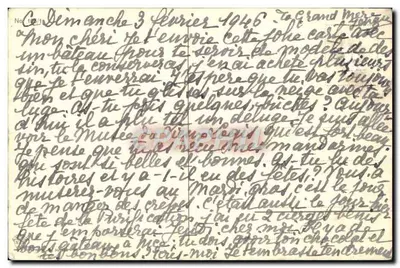 Ce Dimanche 3 février 1946 Ta Grand Mère
Mon chéri Je t'envoie cette jolie carte avec
un bateau pour te servir de modèle de des
sin, tu la conserveras, j'en ai acheté plusieurs
que je t'enverrai. J'espère que tu vas toujours
bien et que tu glisses sur la neige avec ta
luge. As-tu pris quelques bûches? Aujour
d'hui il a plu un déluge. Je suis allée
voir le Musée qui est fort beau
Je pense que tes mandarines
qui sont si belles et bonnes. As-tu lu des
histoires et y a-t-il eu des fêtes? Vous a
muserez-vous au Mardi gras, c'est le jour
de manger des crêpes. C'était aussi le jour
fête de la Purification j'ai eu 2 cierges bénis
que j'emporterai chez moi. Il y a de
bons gâteaux à Nice, tu dois avoir ton chocolat et
tes bonbons? Ecris-moi Je t'embrasse tendrement